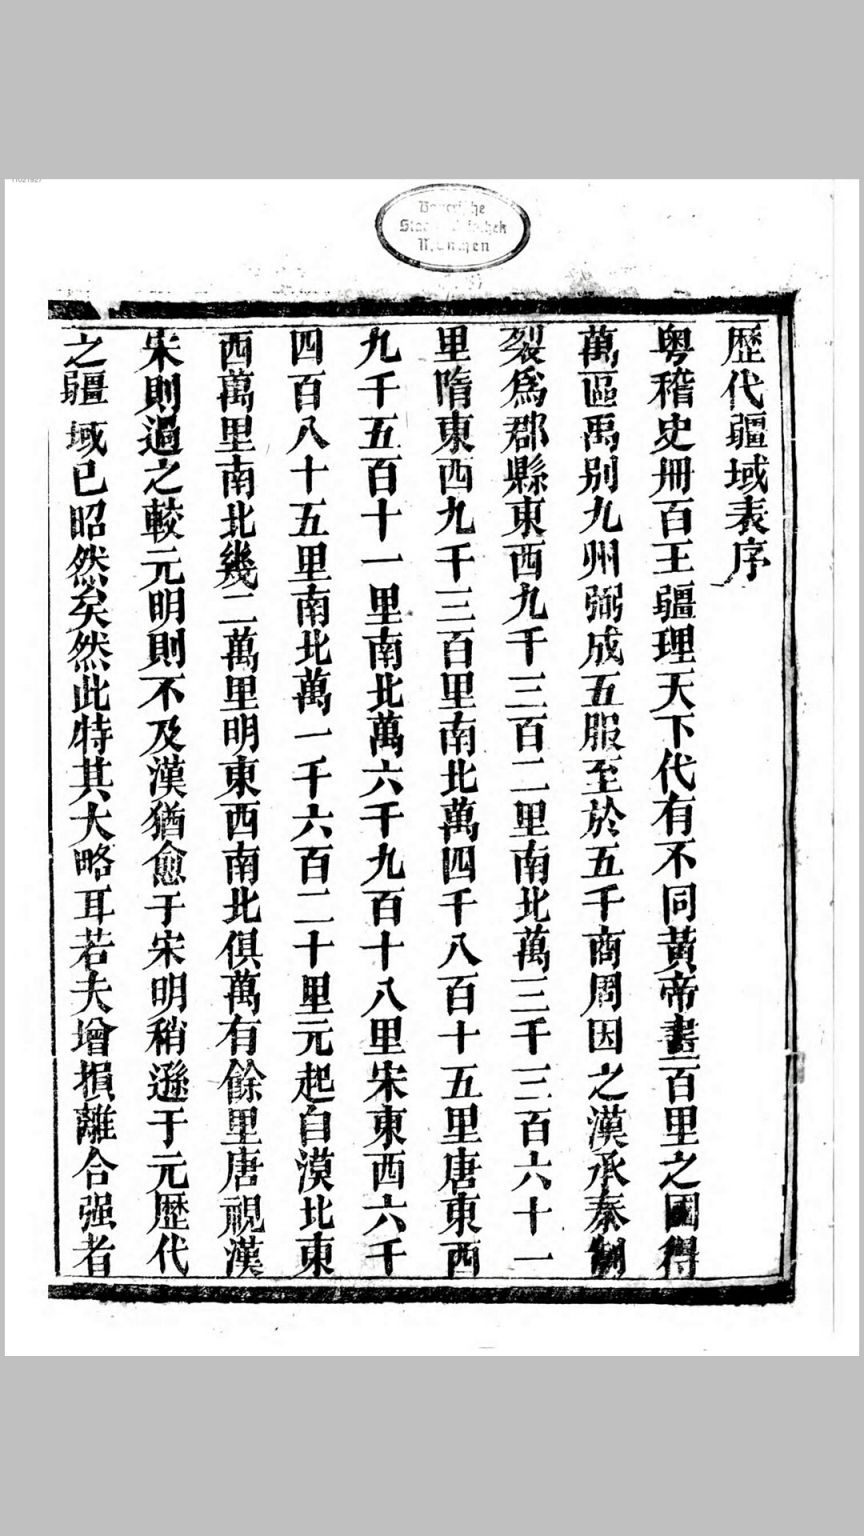 歷代疆域表序
粤稽史冊百王疆理天下代有不同黃帝畫百里之國得
萬區禹别九州弼成五服至於五千商周因之漢承秦制
裂爲郡縣東西九千三百二里南北萬三千三百六十一
里隋東西九千三百里南北萬四千八百十五里唐東西
九千五百十一里南北萬六千九百十八里宋東西六千
四百八十五里南北萬一千六百二十里元起自漠北東
西萬里南北幾二萬里明東西南北俱萬有餘里唐視漢
宋則過之較元明則不及漢猶愈于宋明稍遜于元歷代
之疆域已昭然矣然此特其大略耳若夫增損離合强者
Bayerische
Staatsbibliothek
München
11021927